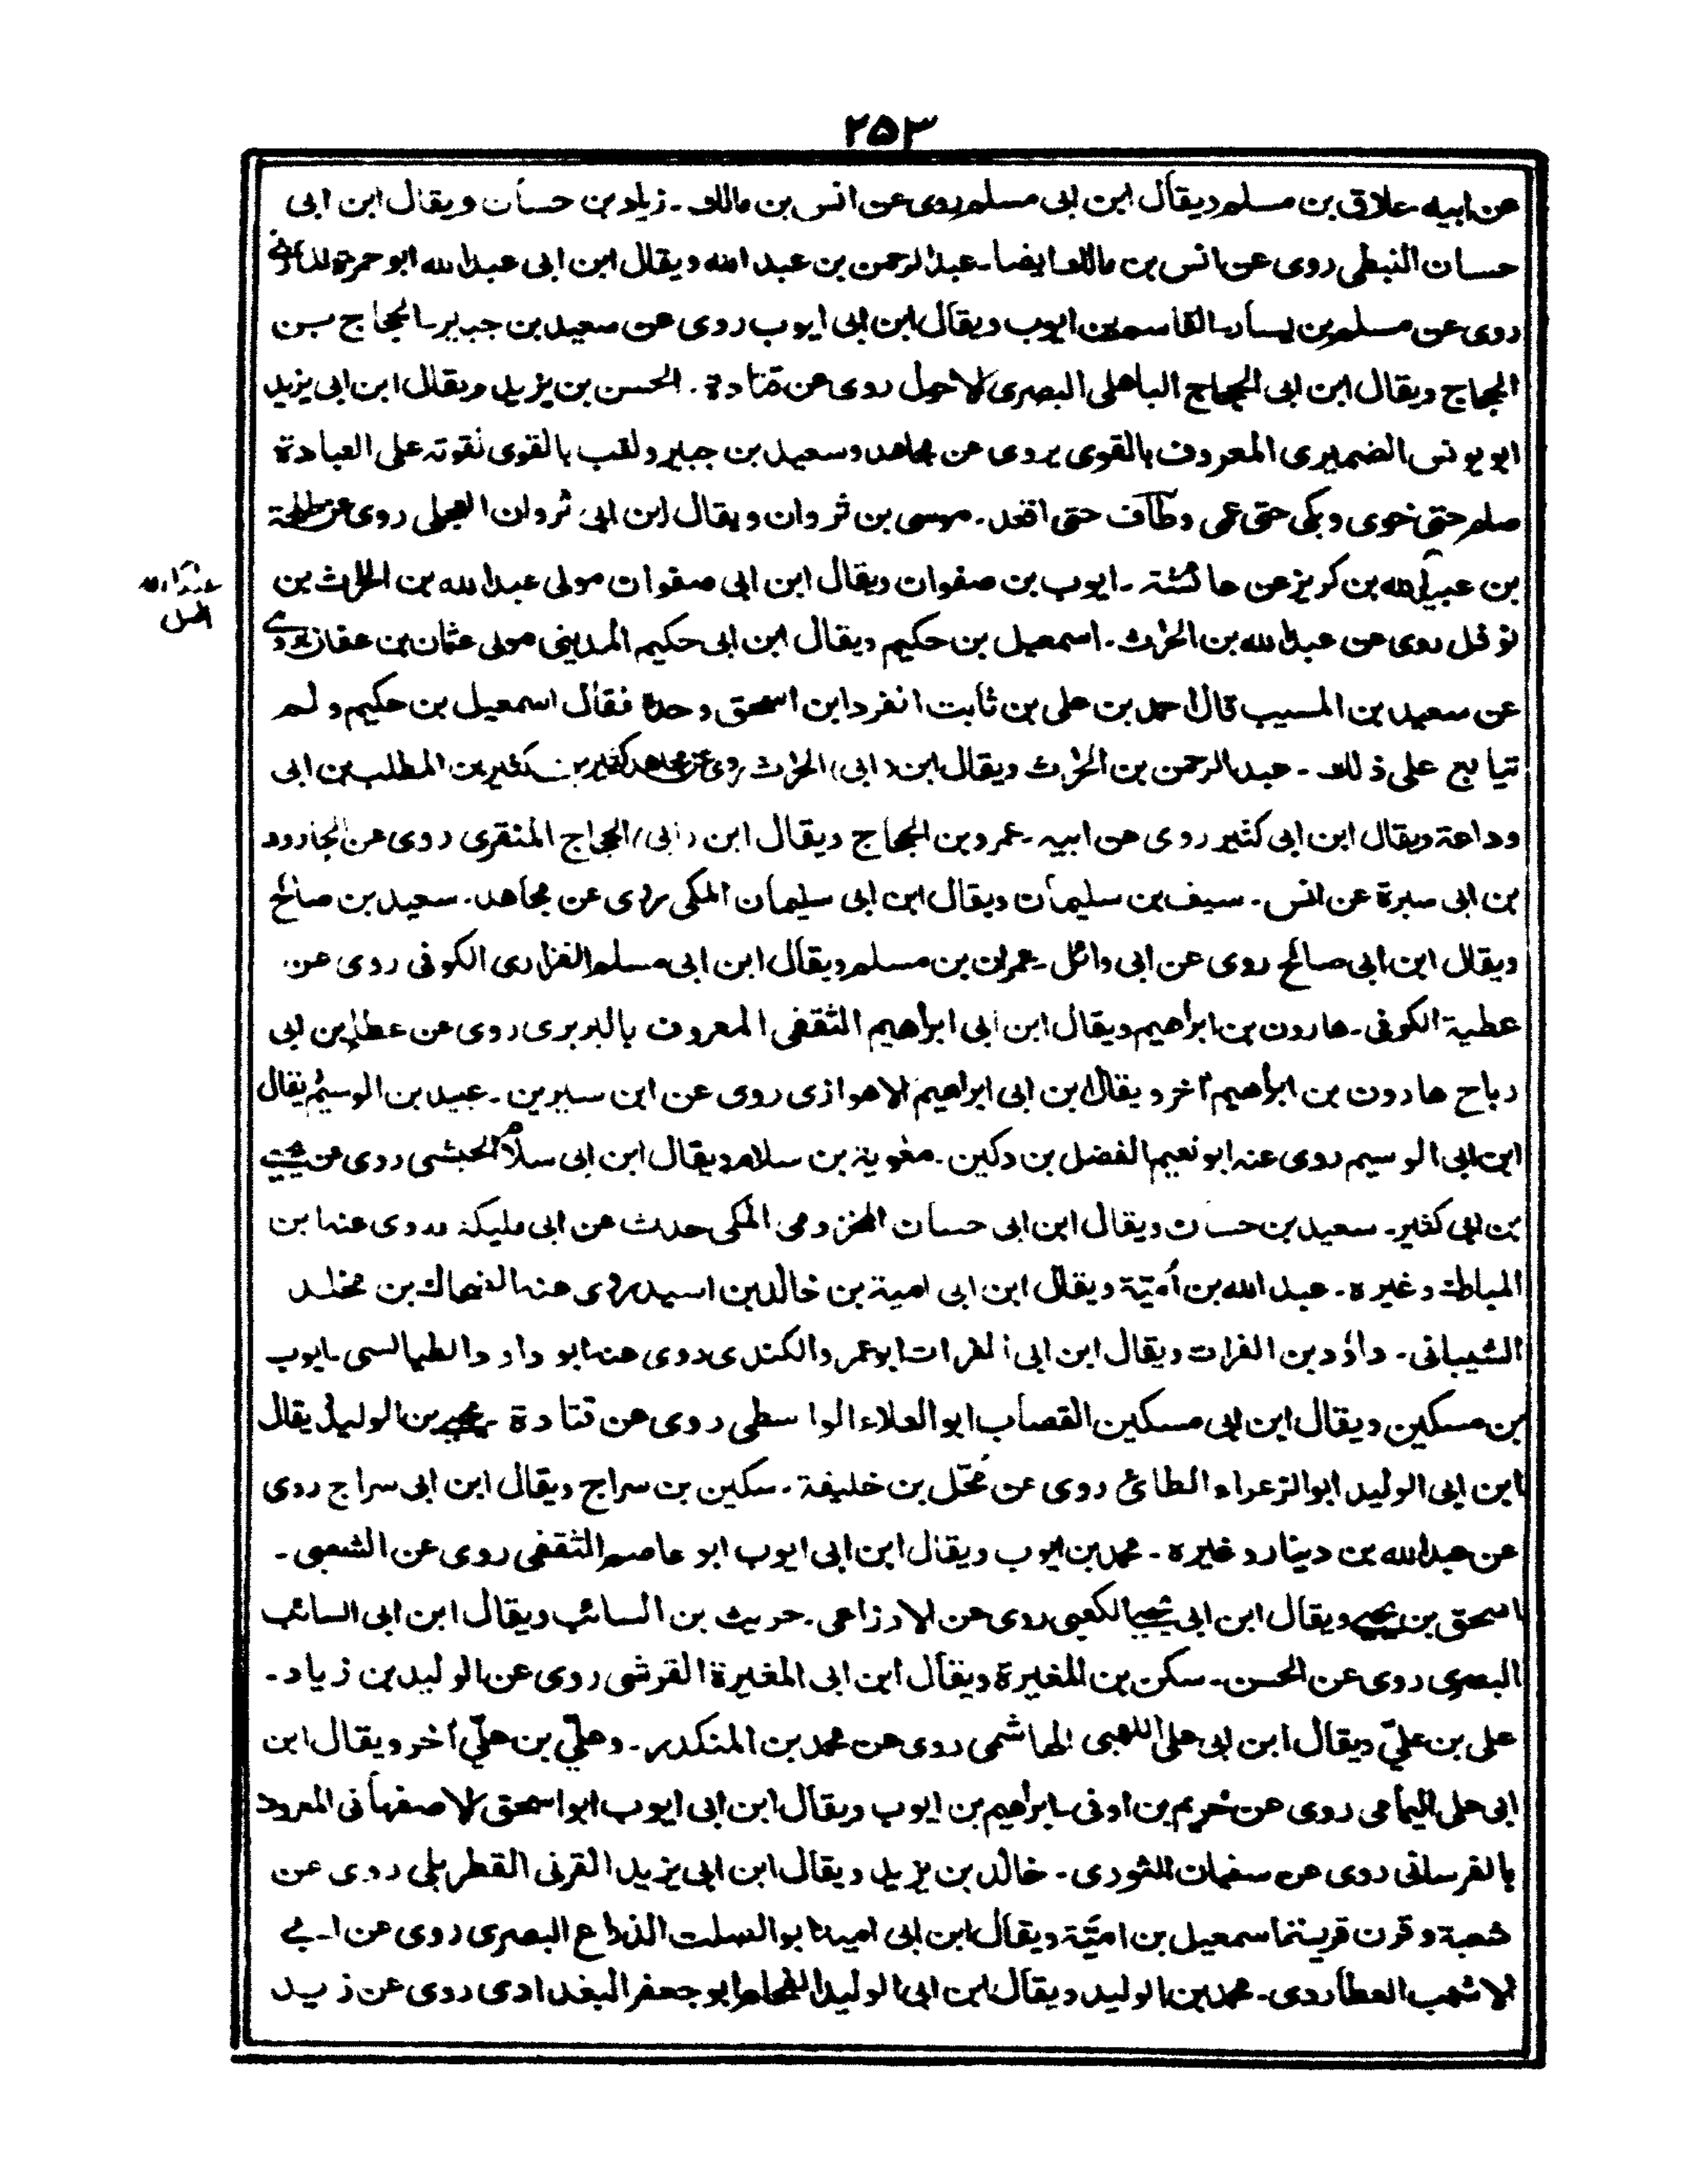 ٢٥٣
عن ابيه علاق بن مسلم ويقال ابن ابى مسلم روى عن انس بن مالك ـ زياد بن حسان ويقال ابن ابى
حسان النبطى روى عن انس بن مالك ايضا ـ عبد الرحمن بن عبد الله ويقال ابن ابى عبد الله ابو حمزة
روى عن مسلم بن يسار ـ القاسم بن ايوب ويقال ابن ابى ايوب روى عن سعيد بن جبير ـ الحجاج بن
الحجاج ويقال ابن ابى الحجاج الباهلى البصرى الاحول روى عن قتادة ـ الحسن بن يزيد ويقال ابن ابى يزيد
ابو يونس الضميرى المعروف بالقوى يروى عن مجاهد وسعيد بن جبير ولقب بالقوى لقوته على العبادة
صام حتى خوى وبكى حتى عمى وطاف حتى اقعد ـ موسى بن ثروان ويقال ابن ابى ثروان العجلى روى عن طلحة
بن عبيد الله بن كريز عن عائشة ـ ايوب بن صفوان ويقال ابن ابى صفوان مولى عبد الله بن الحارث بن
نوفل روى عن عبد الله بن الحارث ـ اسمعيل بن حكيم ويقال ابن ابى حكيم المدينى مولى عثمان بن عفان يروى
عن سعيد بن المسيب قال احمد بن على بن ثابت انفرد ابن اسحق وحده فقال اسمعيل بن حكيم ولم
يتابع على ذلك ـ عبد الرحمن بن الحارث ويقال ابن (ابى) الحارث روى عن مجاهد كثير بن كثير بن المطلب بن ابى
وداعة ويقال ابن ابى كثير روى عن ابيه ـ عمرو بن الحجاج ويقال ابن (ابى) الحجاج المنقرى روى عن الجارود
بن ابى سبرة عن انس ـ سيف بن سليمان ويقال ابن ابى سليمان المكى روى عن مجاهد ـ سعيد بن صالح
ويقال ابن ابى صالح روى عن ابى وائل ـ عمران بن مسلم ويقال ابن ابى مسلم الفزارى الكوفى روى عن
عطية الكوفى ـ هارون بن ابراهيم ويقال ابن ابى ابراهيم الثقفى المعروف بالبربرى روى عن عطاء بن ابى
رباح هارون بن ابراهيم آخر ويقال ابن ابى ابراهيم الاهوازى روى عن ابن سيرين ـ عبيد بن الوسيم يقال
ابن ابى الوسيم روى عنه ابو نعيم الفضل بن دكين ـ معٰوية بن سلام ويقال ابن ابى سلام الحبشى روى عن يحيى
بن ابى كثير ـ سعيد بن حسان ويقال ابن ابى حسان المخزومى المكى حدث عن ابى مليكة وروى عنه ابن
المباطة وغيره ـ عبد الله بن أميّة ويقال ابن ابى امية بن خالد بن اسيد روى عنه الضحاك بن مخلد
الشيبانى ـ داؤد بن الفرات ويقال ابن ابى الفرات ابو عمرو الكندى روى عنه ابو داود الطيالسى ـ ايوب
بن مسكين ويقال ابن ابى مسكين القصاب ابو العلاء الواسطى روى عن قتادة ـ يحيى بن الوليد يقال
ابن ابى الوليد ابو الزعراء الطائى روى عن مُحّل بن خليفة ـ سكين بن سراج ويقال ابن ابى سراج روى
عن عبد الله بن دينار وغيره ـ محمد بن ايوب ويقال ابن ابى ايوب ابو عاصم الثقفى روى عن الشعبى ـ
اسحق بن يحيى ويقال ابن ابى يحيى الكعبى روى عن الاوزاعى ـ حريث بن السائب ويقال ابن ابى السائب
البصرى روى عن الحسن ـ سكن بن المغيرة ويقال ابن ابى المغيرة القرشى روى عن الوليد بن زياد ـ
على بن علىّ ويقال ابن ابى على اللهبى الهاشمى روى عن محمد بن المنكدر ـ وعلىّ بن علىّ آخر ويقال ابن
ابى على اليمامى روى عن خريم بن اوفى ـ ابراهيم بن ايوب ويقال ابن ابى ايوب ابو اسحق الاصفهانى المعروف
بالفرسانى روى عن سفيان الثورى ـ خالد بن يزيد ويقال ابن ابى يزيد القرنى القطربلى روى عن
شعبة وقرن قرية ـ اسمعيل بن اميّة ويقال ابن ابى امية ابو الصلت الذراع البصرى روى عن ابى
الاشهب العطاردى ـ محمد بن الوليد ويقال ابن ابى الوليد الفحام ابو جعفر البغدادى روى عن زيد